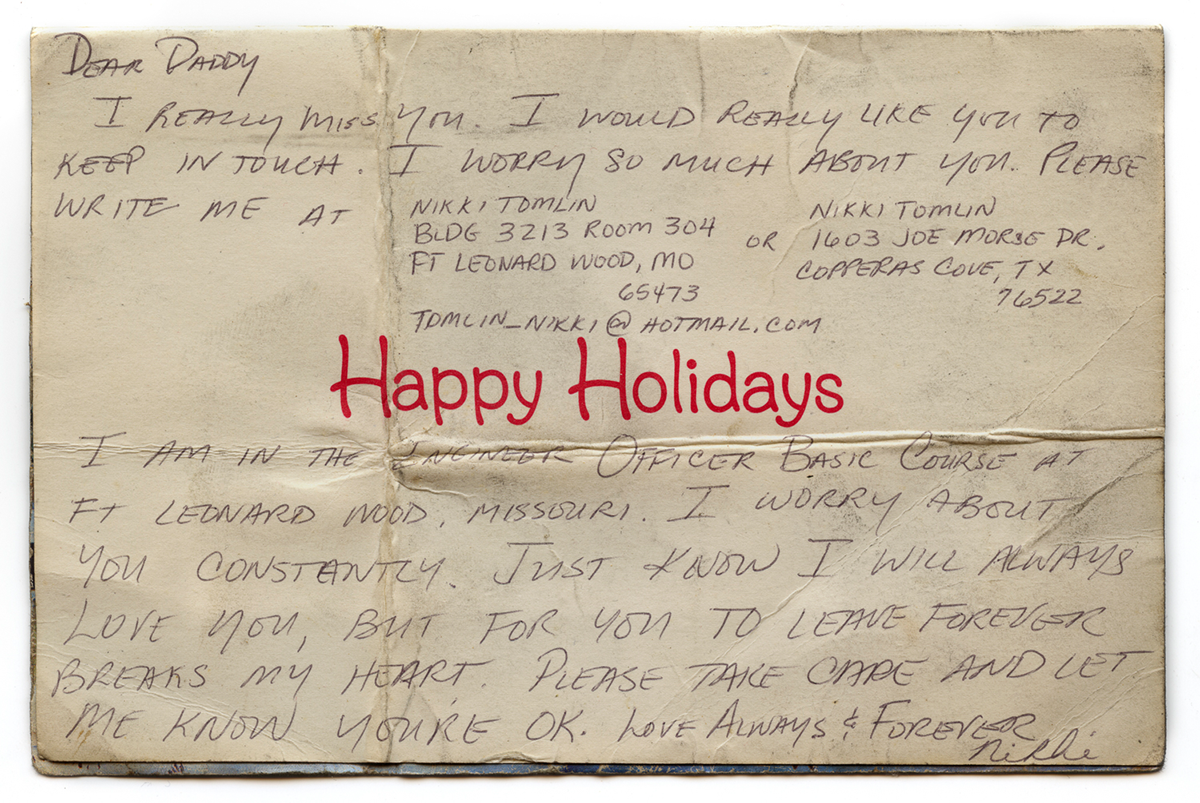 DEAR DADDY
I REALLY MISS YOU. I WOULD REALLY LIKE YOU TO
KEEP IN TOUCH. I WORRY SO MUCH ABOUT YOU. PLEASE
WRITE ME AT
NIKKI TOMLIN
BLDG 3213 ROOM 304
FT LEONARD WOOD, MO
65473
TOMLIN_NIKKI@HOTMAIL.COM
OR
NIKKI TOMLIN
1603 JOE MORSE DR.
COPPERAS COVE, TX
76522
Happy Holidays
I AM IN THE ENGINEER OFFICER BASIC COURSE AT
FT LEONARD WOOD, MISSOURI. I WORRY ABOUT
YOU CONSTANTLY. JUST KNOW I WILL ALWAYS
LOVE YOU, BUT FOR YOU TO LEAVE FOREVER
BREAKS MY HEART. PLEASE TAKE CARE AND LET
ME KNOW YOU'RE OK. LOVE ALWAYS & FOREVER
Nikki